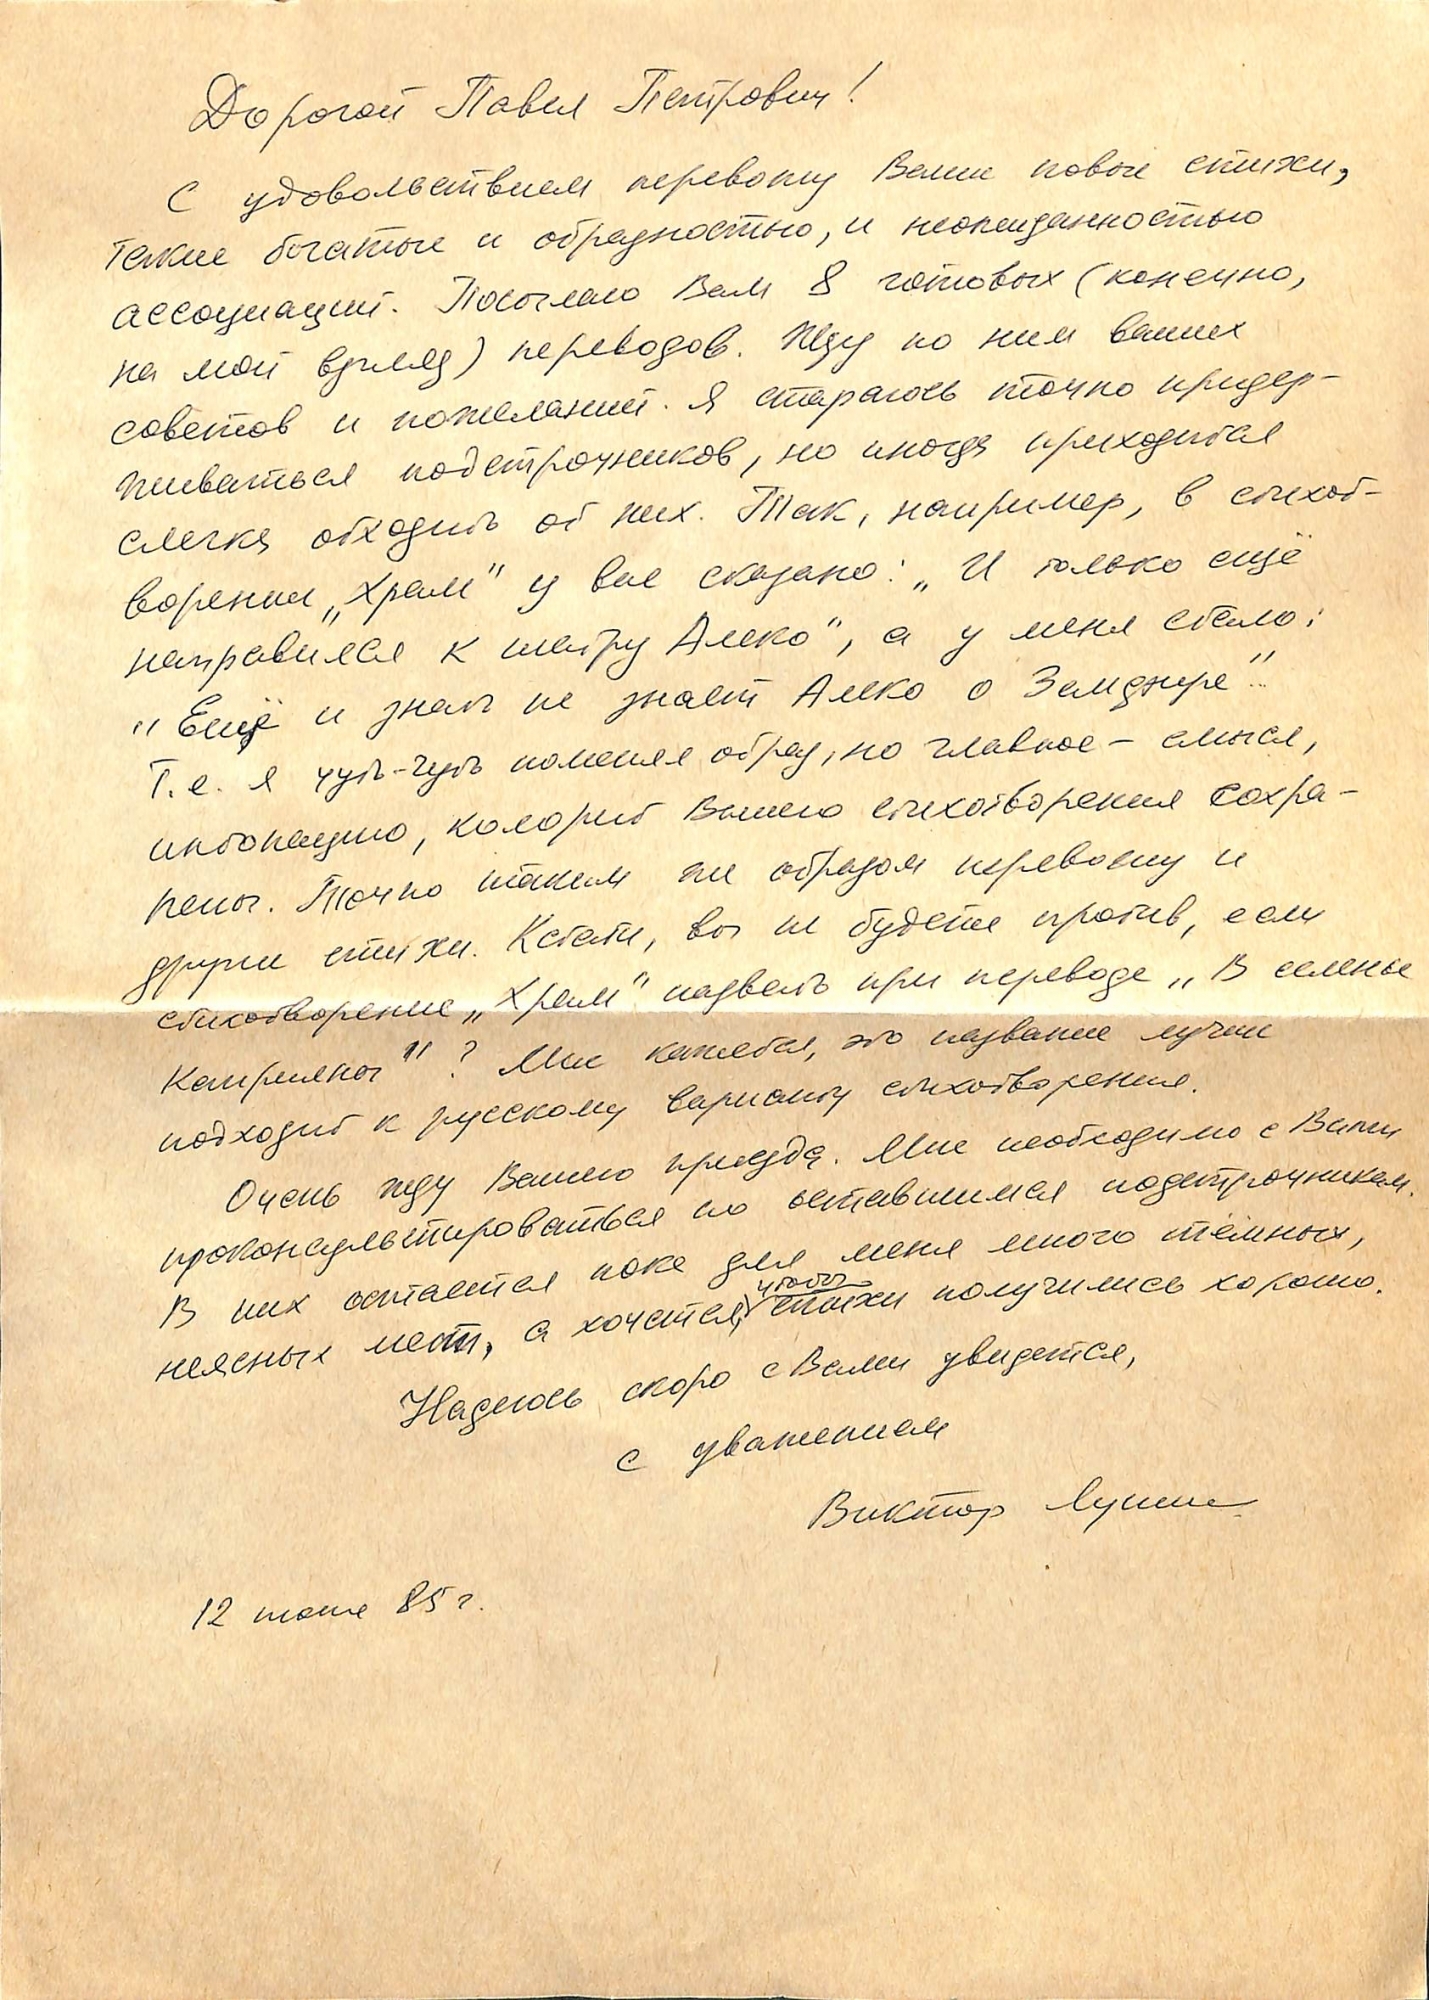 Дорогой Павел Петрович!
С удовольствием перевожу Ваши новые стихи,
такие богатые и образностью, и неожиданностью
ассоциаций. Посылаю Вам 8 готовых (конечно,
на мой взгляд) переводов. Жду по ним ваших
советов и пожеланий. Я стараюсь точно придер-
живаться подстрочников, но иногда приходится
слегка отходить от них. Так, например, в стихот-
ворении „Храм" у вас сказано: „И только ещё
направился к шатру Алеко", а у меня стало:
"Ещё и знать не знает Алеко о Земфире"..
Т.е. я чуть-чуть поменял образ, но главное – смысл,
интонацию, колорит Вашего стихотворения сохра-
нены. Точно таким же образом перевожу и
другие стихи. Кстати, вы не будете против, если
стихотворение „Храм" назвать при переводе „В селенье
Каприяны"? Мне кажется, это название лучше
подходит к русскому варианту стихотворения.
Очень жду Вашего приезда. Мне необходимо с Вами
проконсультироваться по оставшимся подстрочникам.
В них остается пока для меня много тёмных,
неясных мест, а хочется, чтобы стихи получились хорошо.
Надеюсь скоро с Вами увидется,
с уважением
Виктор Лунин
12 июня 85 г.